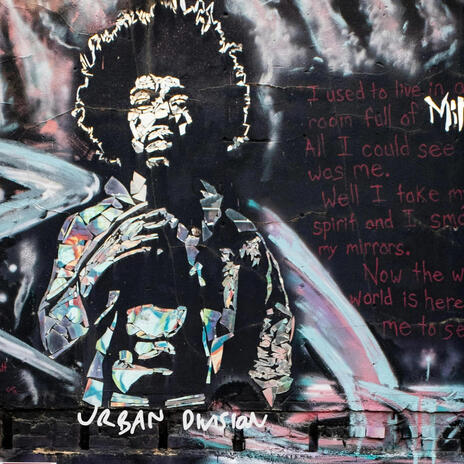 I used to live in a
room full of Mi
All I could see
was me.
Well I take m
spirit and I sma
my mirrors.
Now the w
world is here
me to se
URBAN DIVISION